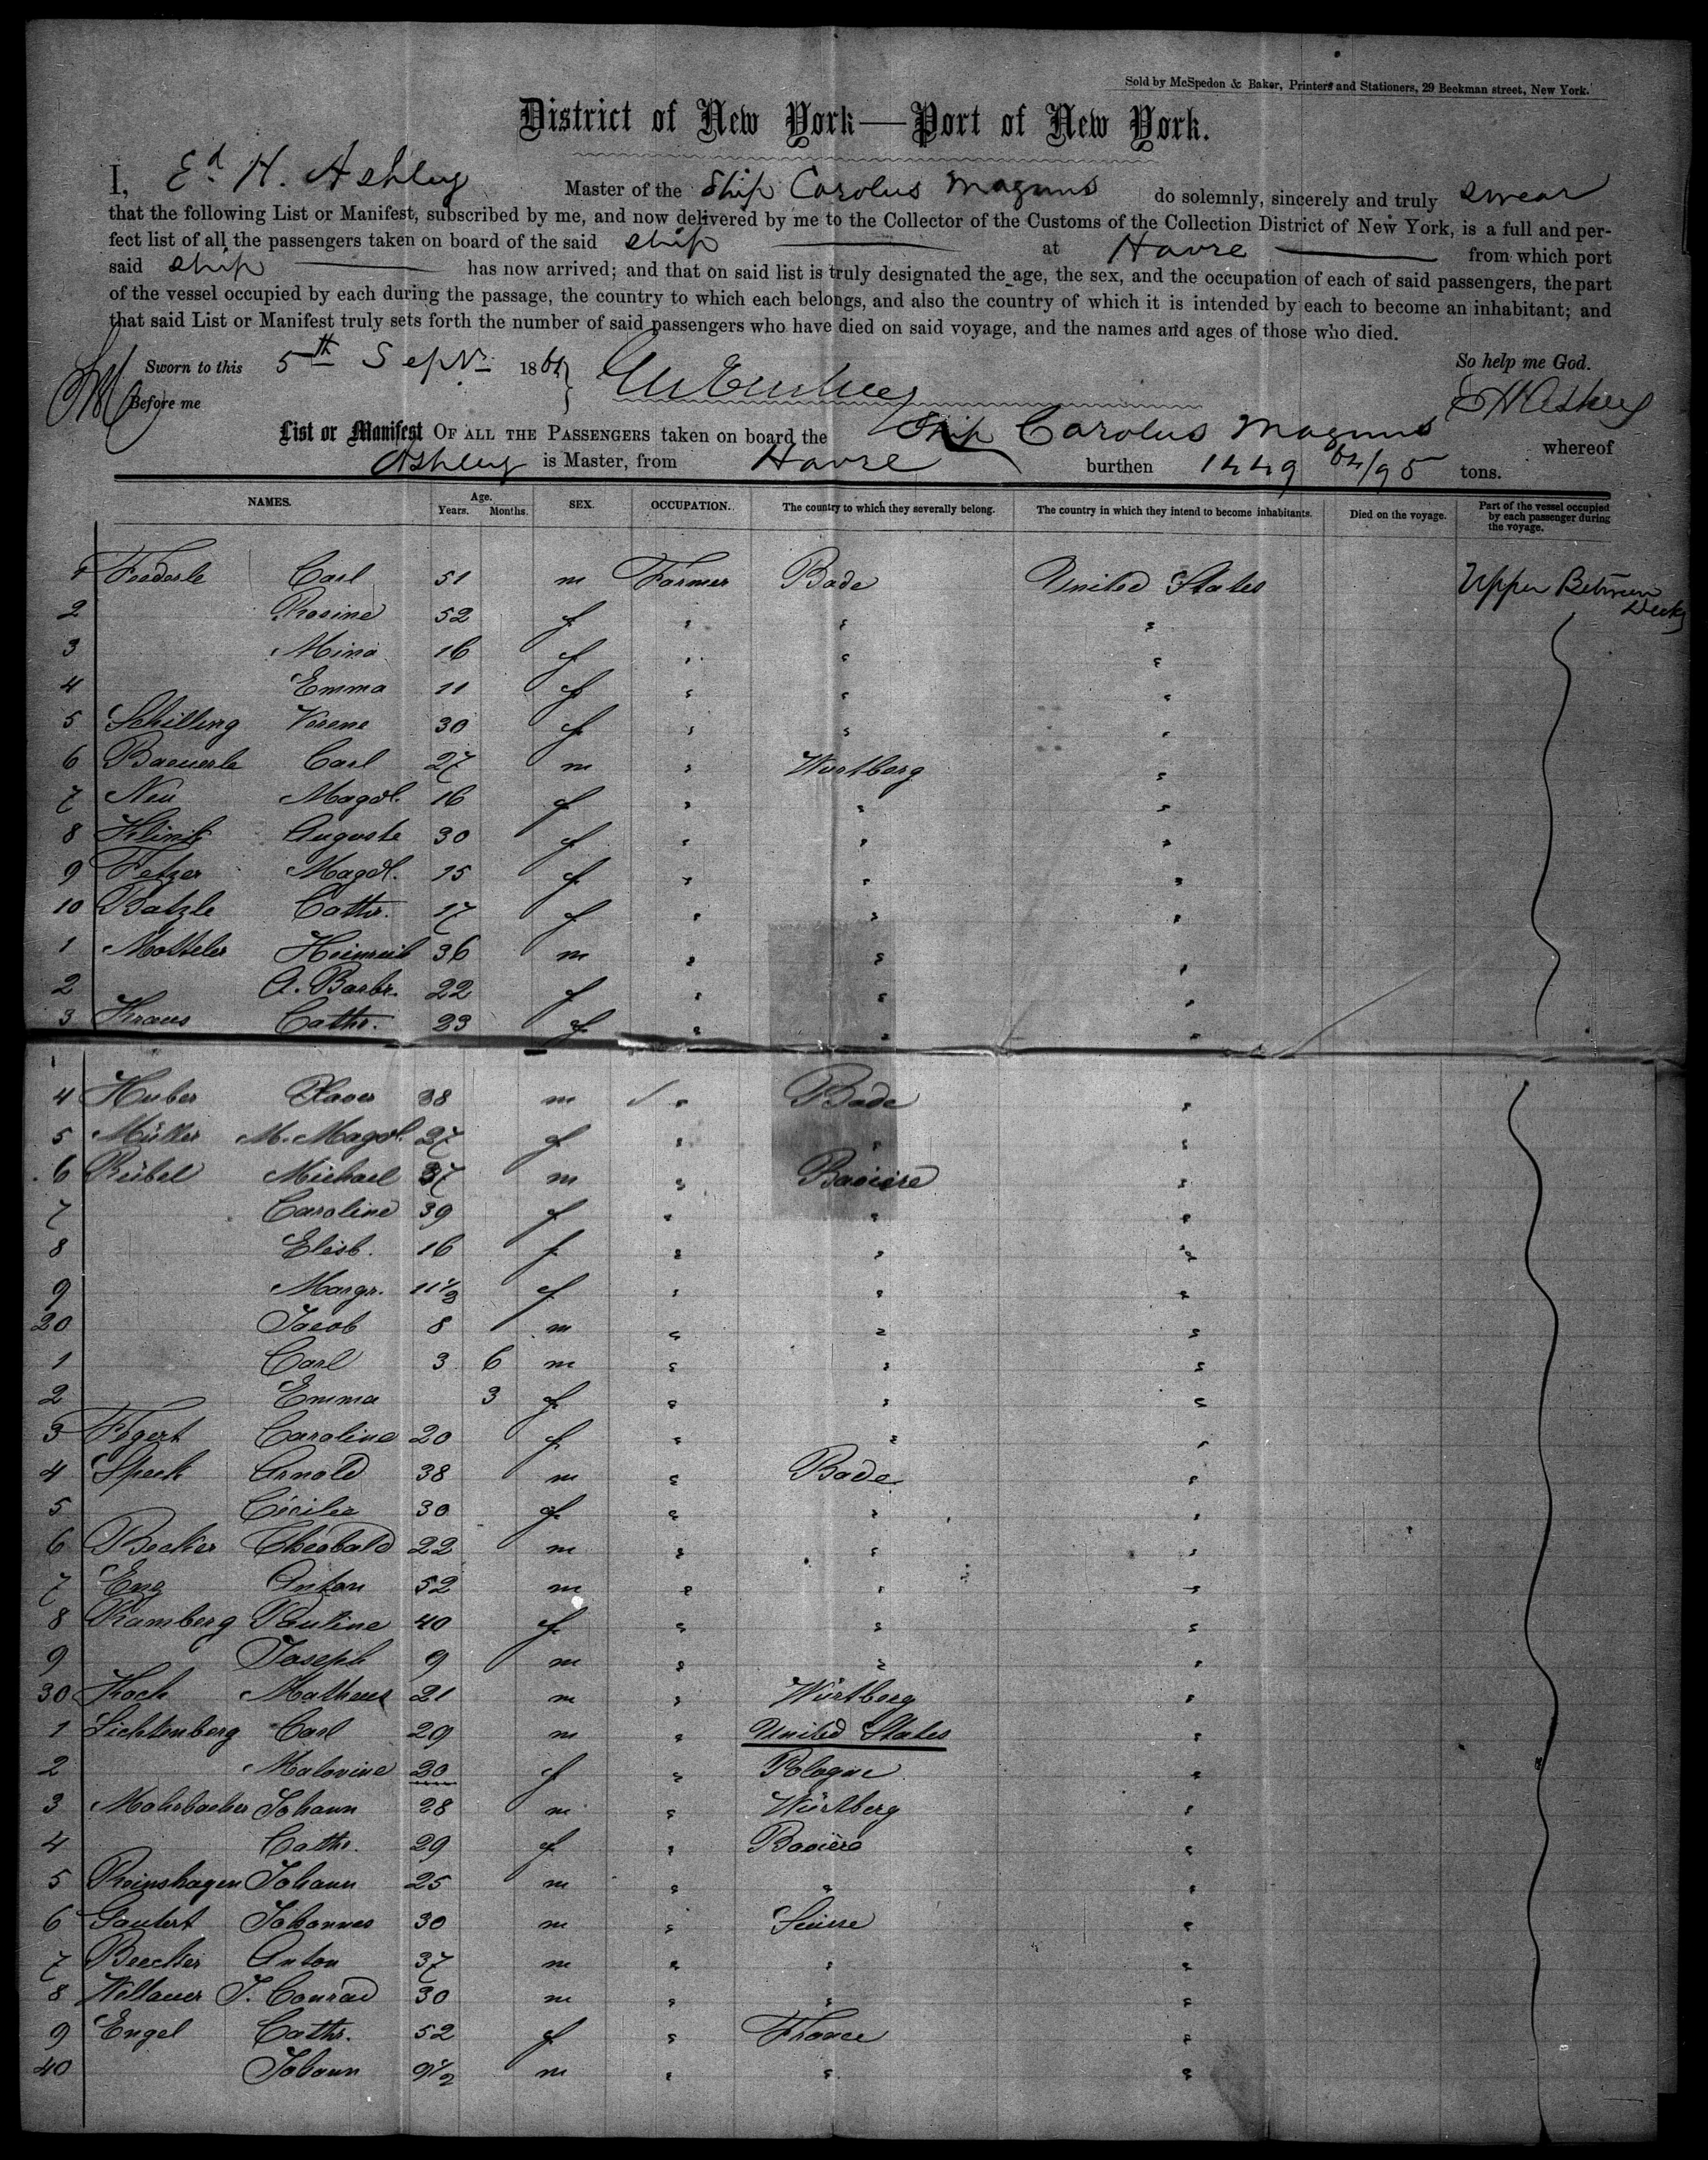 Sold by McSpedon & Baker, Printers and Stationers, 29 Beekman street, New York.
District of New York—Port of New York.
I, Ed. H. Ashley Master of the Ship Carolus Magnus do solemnly, sincerely and truly swear
that the following List or Manifest, subscribed by me, and now delivered by me to the Collector of the Customs of the Collection District of New York, is a full and per-
fect list of all the passengers taken on board of the said ship at Havre from which port
said ship has now arrived; and that on said list is truly designated the age, the sex, and the occupation of each of said passengers, the part
of the vessel occupied by each during the passage, the country to which each belongs, and also the country of which it is intended by each to become an inhabitant; and
that said List or Manifest truly sets forth the number of said passengers who have died on said voyage, and the names and ages of those who died.
Sworn to this 5th Sepr. 18 So help me God.
Before me EHAshley
List or Manifest OF ALL THE PASSENGERS taken on board the Ship Carolus Magnus whereof
Ashley is Master, from Havre burthen 1449 64/95 tons.
NAMES. Age. Years. Months. SEX. OCCUPATION. The country to which they severally belong. The country in which they intend to become inhabitants. Died on the voyage. Part of the vessel occupied by each passenger during the voyage.
1 Feederle Carl 51 m Farmer Bade United States Upper Between Decks
2 Rosine 52 f " " "
3 Mina 16 f " " "
4 Emma 11 f " " "
5 Schilling Verene 30 f " " "
6 Baeuerle Carl 27 m " Wurtberg "
7 Neu Magdl. 16 f " " "
8 Klink Auguste 30 f " " "
9 Fetzer Magdl. 15 f " " "
10 Batzle Cathr. 17 f " " "
1 Motteler Heinrich 36 m " " "
2 A. Barbr. 22 f " " "
3 Kraus Cathr. 23 f " " "
4 Huber Xaver 38 m " Bade "
5 Müller M. Magdl. 27 f " " "
6 Rübel Michael 37 m " Baviere "
7 Caroline 39 f " " "
8 Elisb. 16 f " " "
9 Margr. 11½ f " " "
20 Jacob 8 m " " "
1 Carl 3 6 m " " "
2 Emma 3 f " " "
3 Fogert Caroline 20 f " " "
4 Speck Arnold 38 m " Bade "
5 Cécilie 30 f " " "
6 Becker Théobald 22 m " " "
7 Eng Anton 52 m " " "
8 Ramberg Pauline 40 f " " "
9 Joseph 9 m " " "
30 Koch Matheus 21 m " Würtberg "
1 Lichtenberg Carl 29 m " United States "
2 Malovine 20 f " Pologne "
3 Mohrbacher Johann 28 m " Würtberg "
4 Cathr. 29 f " Baviere "
5 Reinshagen Johann 25 m " " "
6 Gautert Johannes 30 m " Suisse "
7 Beecker Anton 37 m " " "
8 Wellauer J. Conrad 30 m " " "
9 Engel Cathr. 52 f " France "
40 Johann 9½ m " " "